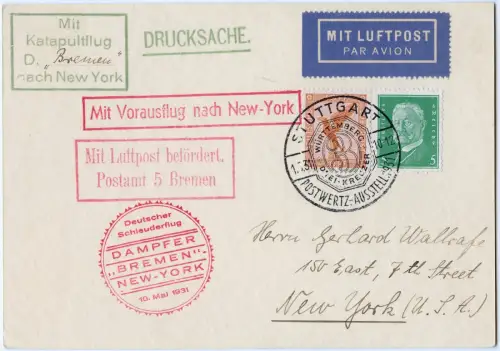 Mit
Katapultflug
D. "Bremen"
nach New York
DRUCKSACHE.
MIT LUFTPOST
PAR AVION
Mit Vorausflug nach New-York
Mit Luftpost befördert.
Postamt 5 Bremen
STUTTGART
WÜRTTEMBERG
DREI-KREUZER
POSTWERTZ.-AUSSTELL.
5
Deutscher
Schleuderflug
DAMPFER
"BREMEN"-
NEW-YORK
10. Mai 1931
Herrn Gerhard Wallrafe
150 East, 7th Street
New York (U.S.A.)